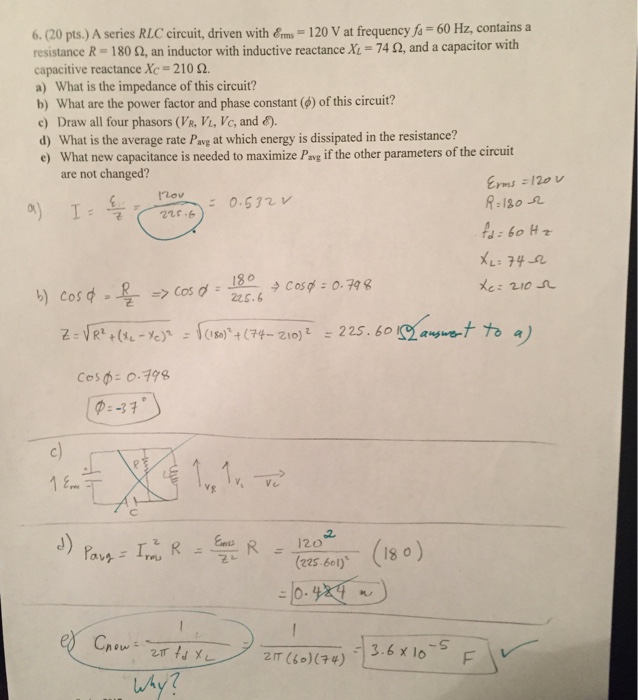 6. (20 pts.) A series RLC circuit, driven with ℰrms = 120 V at frequency fd = 60 Hz, contains a
resistance R = 180 Ω, an inductor with inductive reactance XL = 74 Ω, and a capacitor with
capacitive reactance XC = 210 Ω.
a) What is the impedance of this circuit?
b) What are the power factor and phase constant (ϕ) of this circuit?
c) Draw all four phasors (VR, VL, VC, and ℰ).
d) What is the average rate Pavg at which energy is dissipated in the resistance?
e) What new capacitance is needed to maximize Pavg if the other parameters of the circuit
are not changed?
Erms = 120 V
R = 180 Ω
fd = 60 Hz
XL = 74 Ω
Xc = 210 Ω
a) I = ℰ/Z = 120V/225.6 = 0.532 V
b) cosϕ = R/Z => cosϕ = 180/225.6 → cosϕ = 0.798
Z = √R² + (XL - Xc)² = √(180)² + (74 - 210)² = 225.601Ω answer to a)
cosϕ = 0.798
ϕ = -37°
c)
1 Em R L C VR VL Vc
d) Pavg = I²rms R = Erms/Z² R = 120²/(225.601)² (180)
= 0.424 w
e) Cnew = 1/2π fd XL = 1/2π(60)(74) = 3.6 x 10⁻⁵ F ✓
Why?